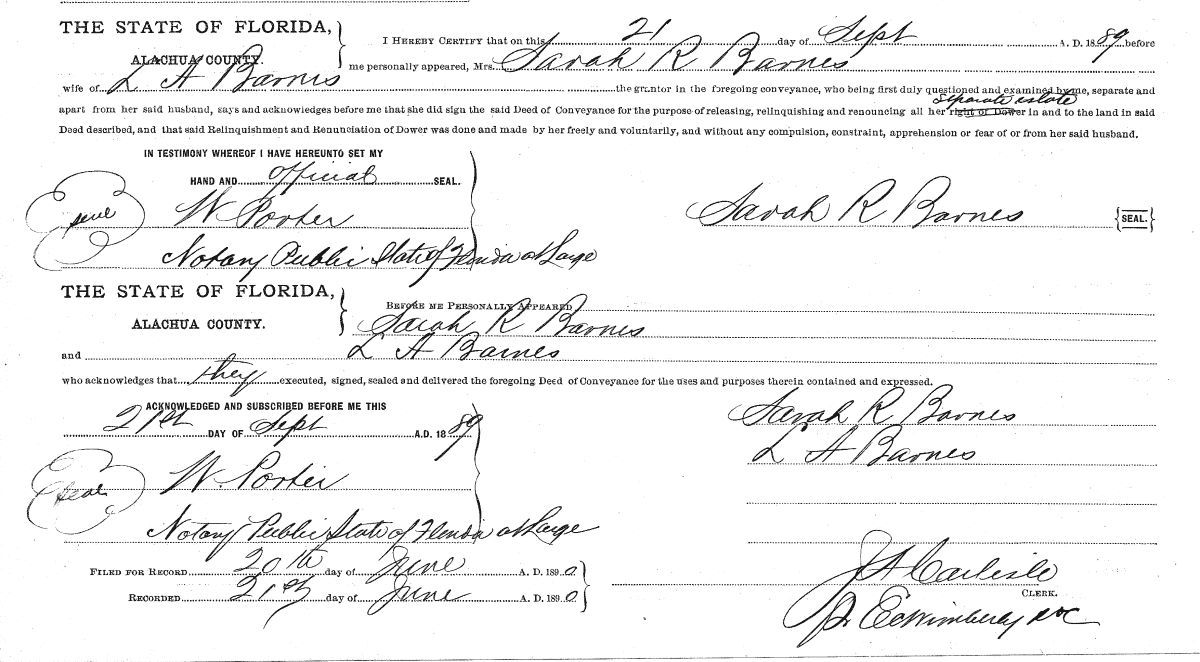 THE STATE OF FLORIDA,
ALACHUA COUNTY.
I HEREBY CERTIFY that on this 21 day of Sept A. D. 1889 before
me personally appeared, Mrs. Sarah R Barnes
wife of L A Barnes the grantor in the foregoing conveyance, who being first duly questioned and examined by me, separate and
separate estate
apart from her said husband, says and acknowledges before me that she did sign the said Deed of Conveyance for the purpose of releasing, relinquishing and renouncing all her right of Dower in and to the land in said
Deed described, and that said Relinquishment and Renunciation of Dower was done and made by her freely and voluntarily, and without any compulsion, constraint, apprehension or fear of or from her said husband.
IN TESTIMONY WHEREOF I HAVE HEREUNTO SET MY
HAND AND official SEAL.
seal W. Porter
Sarah R Barnes {SEAL.}
Notary Public State of Florida at Large
THE STATE OF FLORIDA,
ALACHUA COUNTY.
BEFORE ME PERSONALLY APPEARED
Sarah R Barnes
and L A Barnes
who acknowledges that they executed, signed, sealed and delivered the foregoing Deed of Conveyance for the uses and purposes therein contained and expressed.
ACKNOWLEDGED AND SUBSCRIBED BEFORE ME THIS
21st DAY OF Sept A.D. 1889
Sarah R Barnes
L A Barnes
seal W. Porter
Notary Public State of Florida at Large
FILED FOR RECORD 20th day of June A. D. 1890
RECORDED 21st day of June A. D. 1890
J A Carlisle
CLERK.
Wimberly DC